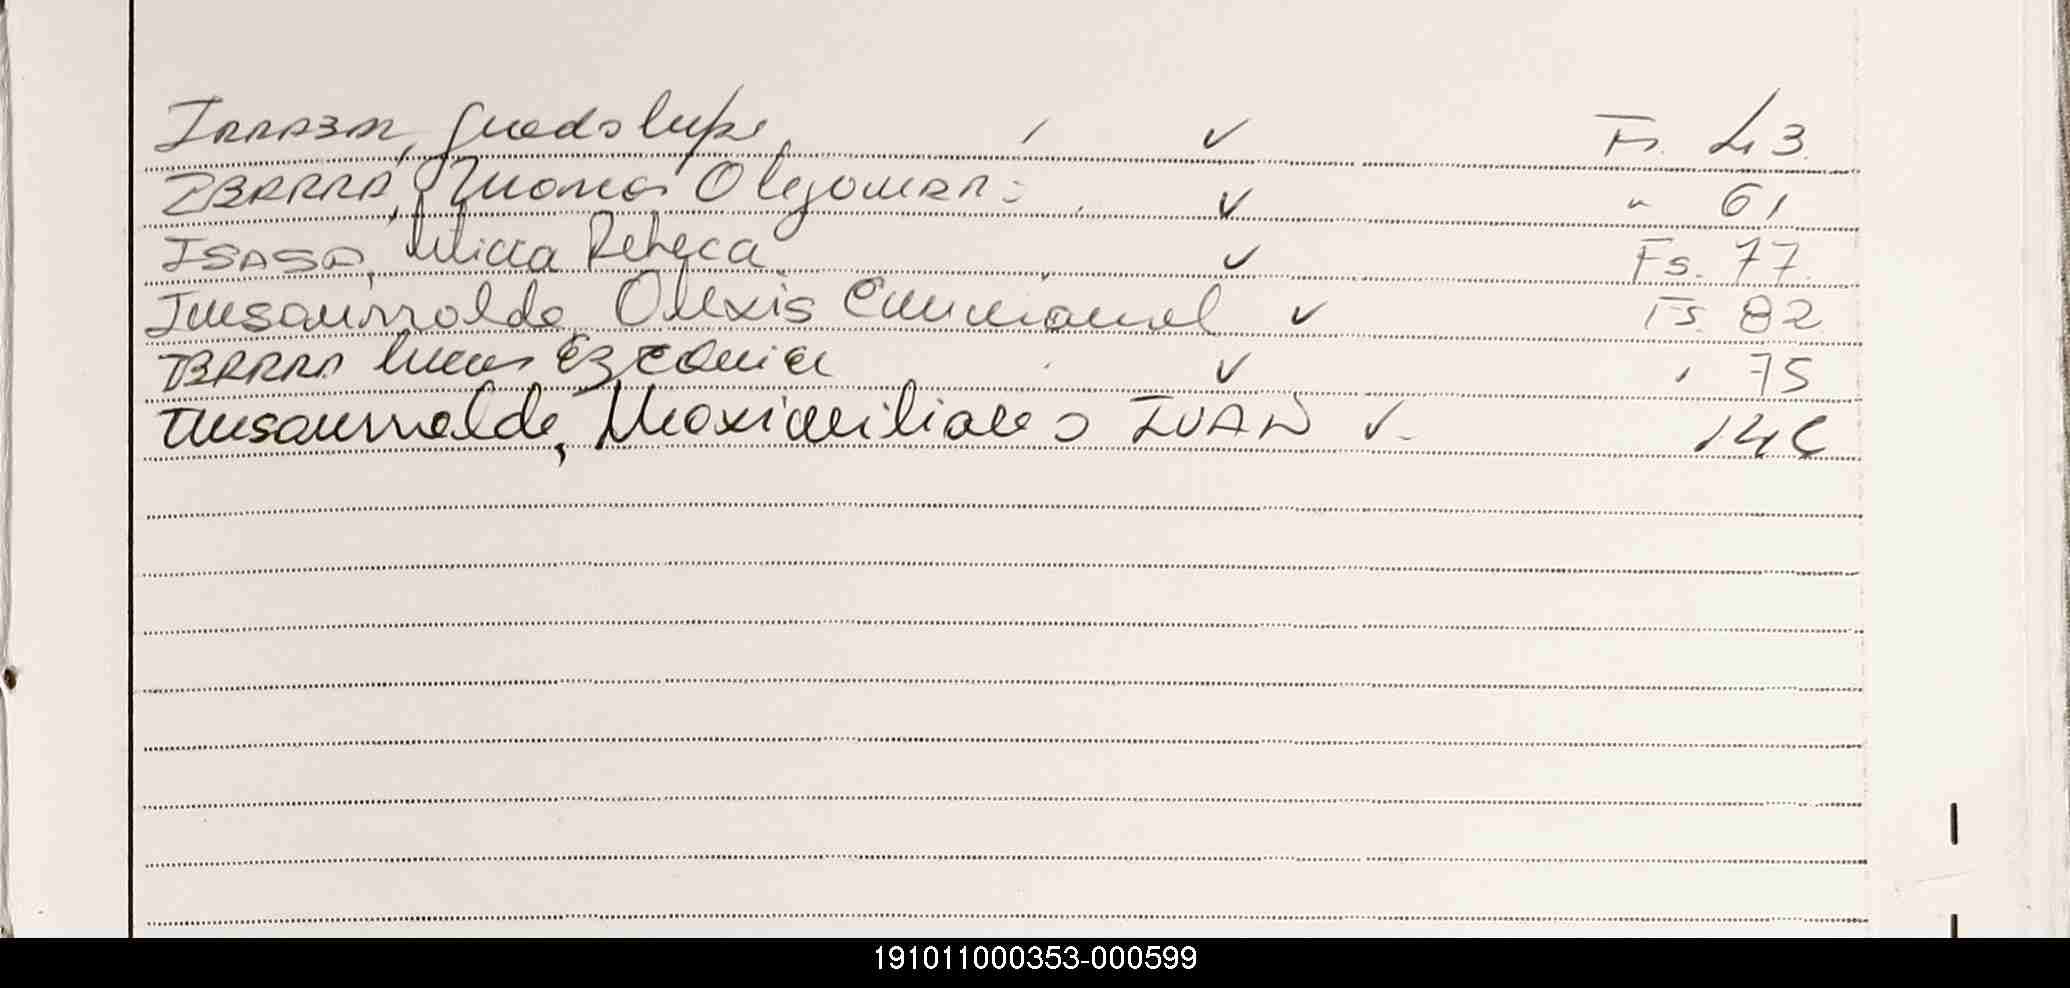 Irrazar, Guadalupe ✓ Fs. 43
IBARRA, Mamo Alejandra ✓ " 61
ISASA, Milca Rebeca ✓ Fs. 77
Insaurralde, Alexis Emmanuel ✓ Fs. 82
IBARRA Lucas Ezequiel ✓ " 75
Insaurralde, Maximiliano IVAN ✓ 146
191011000353-000599